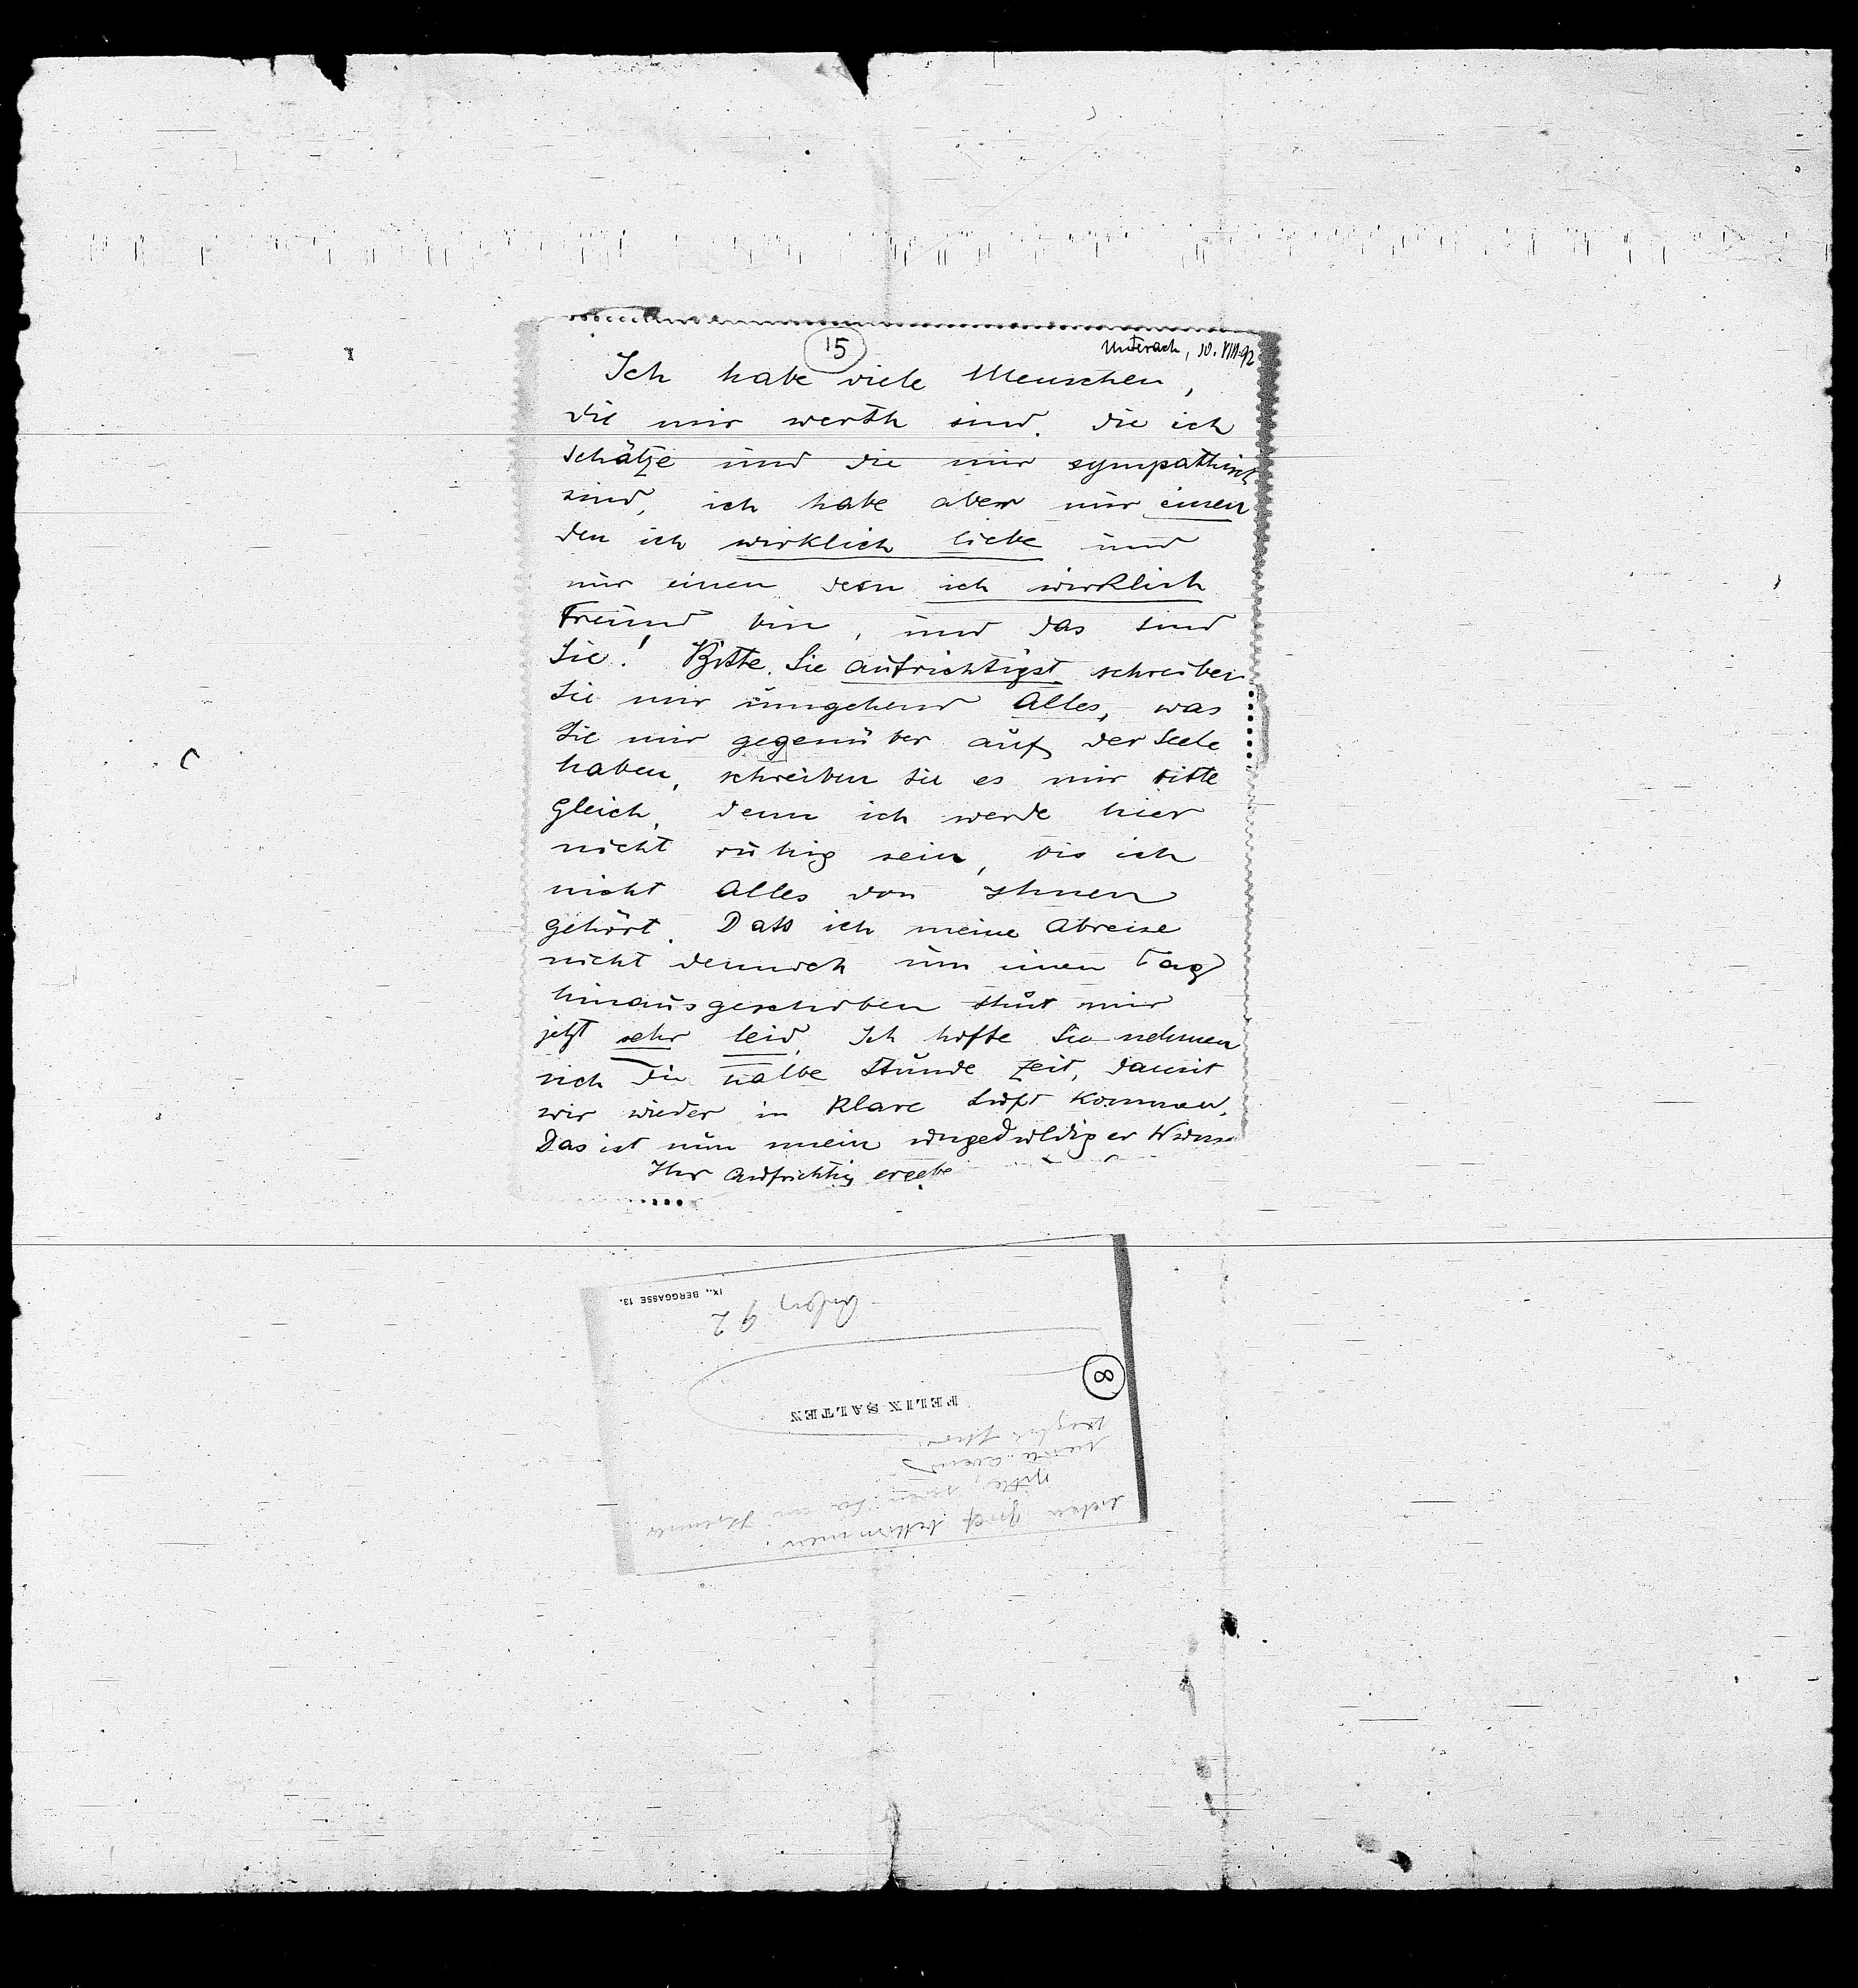 15
Unterach, 10. VIII 92
Ich habe viele Menschen,
die mir werth sind, die ich
schätze und die mir sympathisch
sind, ich habe aber nur einen
den ich wirklich liebe und
nur einen dem ich wirklich
Freund bin, und das sind
Sie! Bitte Sie aufrichtigst schreiben
Sie mir umgehend Alles, was
Sie mir gegenüber auf der Seele
haben, schreiben Sie es mir bitte
gleich, denn ich werde hier
nicht ruhig sein, bis ich
nicht Alles von Ihnen
gehört. Dass ich meine Abreise
nicht dennoch um einen Tag
hinausgeschoben thut mir
jetzt sehr leid. Ich hoffe Sie nehmen
sich die halbe Stunde Zeit, damit
wir wieder in klare Luft kommen.
Das ist nun mein ungeduldiger Wunsch
Ihr aufrichtig ergebe
lieben Brief bekommen.
Bitte, seien Sie im
heute abend
FELIX SALTEN
8
92
IX., BERGGASSE 13.